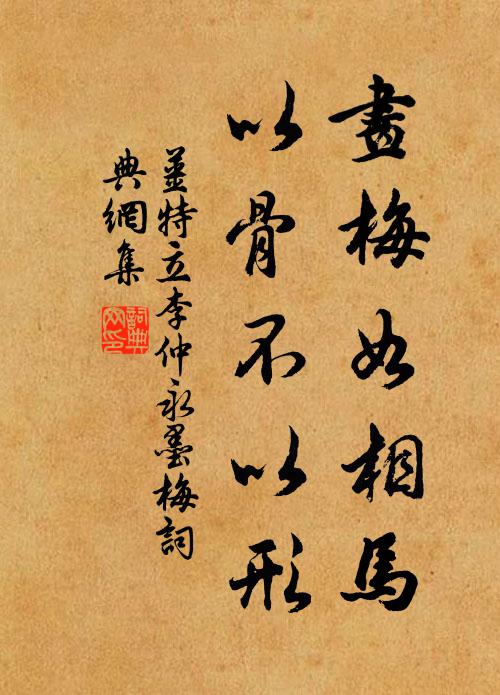 畫梅如相馬
以骨不以形
姜特立李仲永墨梅詞
典網集
詞典
網印